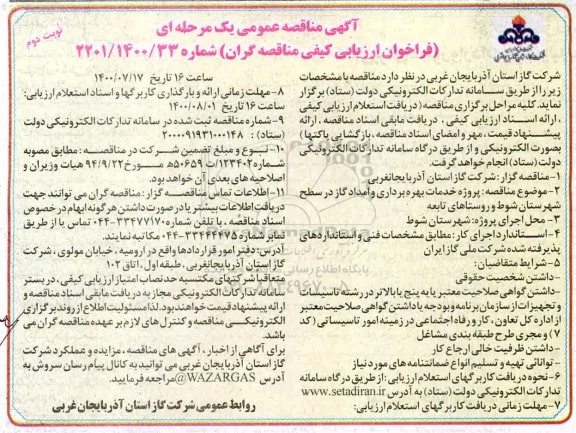 آگهی مناقصه عمومی یک مرحله ای
(فراخوان ارزیابی کیفی مناقصه گران) شماره ۲۲۰۱/۱۴۰۰/۳۳
نوبت دوم
شرکت گاز استان آذربایجان غربی در نظر دارد مناقصه با مشخصات
زیر را از طریق سامانه تدارکات الکترونیکی دولت (ستاد) برگزار
نماید. کلیه مراحل برگزاری مناقصه (دریافت استعلام ارزیابی کیفی
، ارائه اسناد ارزیابی کیفی ، دریافت مابقی اسناد مناقصه ، ارائه
پیشنهاد قیمت ، مهر و امضای اسناد مناقصه ، بازگشایی پاکتها)
بصورت الکترونیکی و از طریق درگاه سامانه تدارکات الکترونیکی
دولت (ستاد) انجام خواهد گرفت.
۱- مناقصه گزار: شرکت گاز استان آذربایجانغربی
۲- موضوع مناقصه: پروژه خدمات بهره برداری و امداد گاز در سطح
شهرستان شوط و روستاهای تابعه
۳- محل اجرای پروژه: شهرستان شوط
۴- استاندارد اجرای کار: مطابق مشخصات فنی و استانداردهای
پذیرفته شده شرکت ملی گاز ایران
۵- شرایط متقاضیان:
-داشتن شخصیت حقوقی
-داشتن گواهی صلاحیت معتبر پایه پنج یا بالاتر در رشته تاسیسات
و تجهیزات از سازمان برنامه و بودجه یا داشتن گواهی صلاحیت معتبر
از اداره کل تعاون ، کار و رفاه اجتماعی در زمینه امور تاسیساتی (کد
۷) و مجری طرح طبقه بندی مشاغل
-داشتن ظرفیت خالی ارجاع کار
- توانائی تهیه و تسلیم انواع ضمانتنامه های مورد نیاز
۶- نحوه دریافت کاربرگهای استعلام ارزیابی : از طریق درگاه سامانه
تدارکات الکترونیکی دولت (ستاد) به آدرس www.setadiran.ir
۷- مهلت زمانی دریافت کاربرگهای استعلام ارزیابی:
ساعت ۱۶ تاریخ ۱۴۰۰/۰۷/۱۷
۸- مهلت زمانی ارائه و بارگذاری کاربرگها و اسناد استعلام ارزیابی:
ساعت ۱۶ تاریخ ۱۴۰۰/۰۸/۰۱
۹- شماره مناقصه ثبت شده در سامانه تدارکات الکترونیکی دولت
(ستاد) : ۲۰۰۰۰۹۱۹۳۱۰۰۰۱۴۸
۱۰- نوع و مبلغ تضمین شرکت در مناقصه : مطابق مصوبه
شماره ۱۲۳۴۰۲/ت ۵۰۶۵۹ه مورخ ۹۴/۹/۲۲ هیات وزیران و
اصلاحیه های بعدی آن خواهد بود.
۱۱- اطلاعات تماس مناقصه گزار : مناقصه گران می توانند جهت
دریافت اطلاعات بیشتر یا در صورت داشتن هر گونه ابهام در خصوص
اسناد مناقصه ، با تلفن شماره ۳۳۴۷۷۱۷۰-۰۴۴ تماس یا از طریق
نمابر شماره ۳۳۴۴۴۴۷۵-۰۴۴ مکاتبه نمایند.
آدرس: دفتر امور قراردادها واقع در ارومیه ، خیابان مولوی ، شرکت
گاز استان آذربایجانغربی ، طبقه اول ، اتاق ۱۰۲
متعاقبا شرکتهای مکتسبه حد نصاب امتیاز ارزیابی کیفی ، در بستر
سامانه تدارکات الکترونیکی مجاز به دریافت مابقی اسناد مناقصه و
ارائه پیشنهاد قیمت خواهند بود. لذا مسئولیت اطلاع از روند برگزاری
الکترونیکسی مناقصه و کنترل های لازم بر عهده مناقصه گران می
باشد.
برای آگاهی از اخبار ، آگهی های مناقصه ، مزایده و عملکرد شرکت
گاز استان آذربایجان غربی می توانید به کانال پیام رسان سروش به
آدرس WAZARGAS@ مراجعه فرمایید.
روابط عمومی شرکت گاز استان آذربایجان غربی